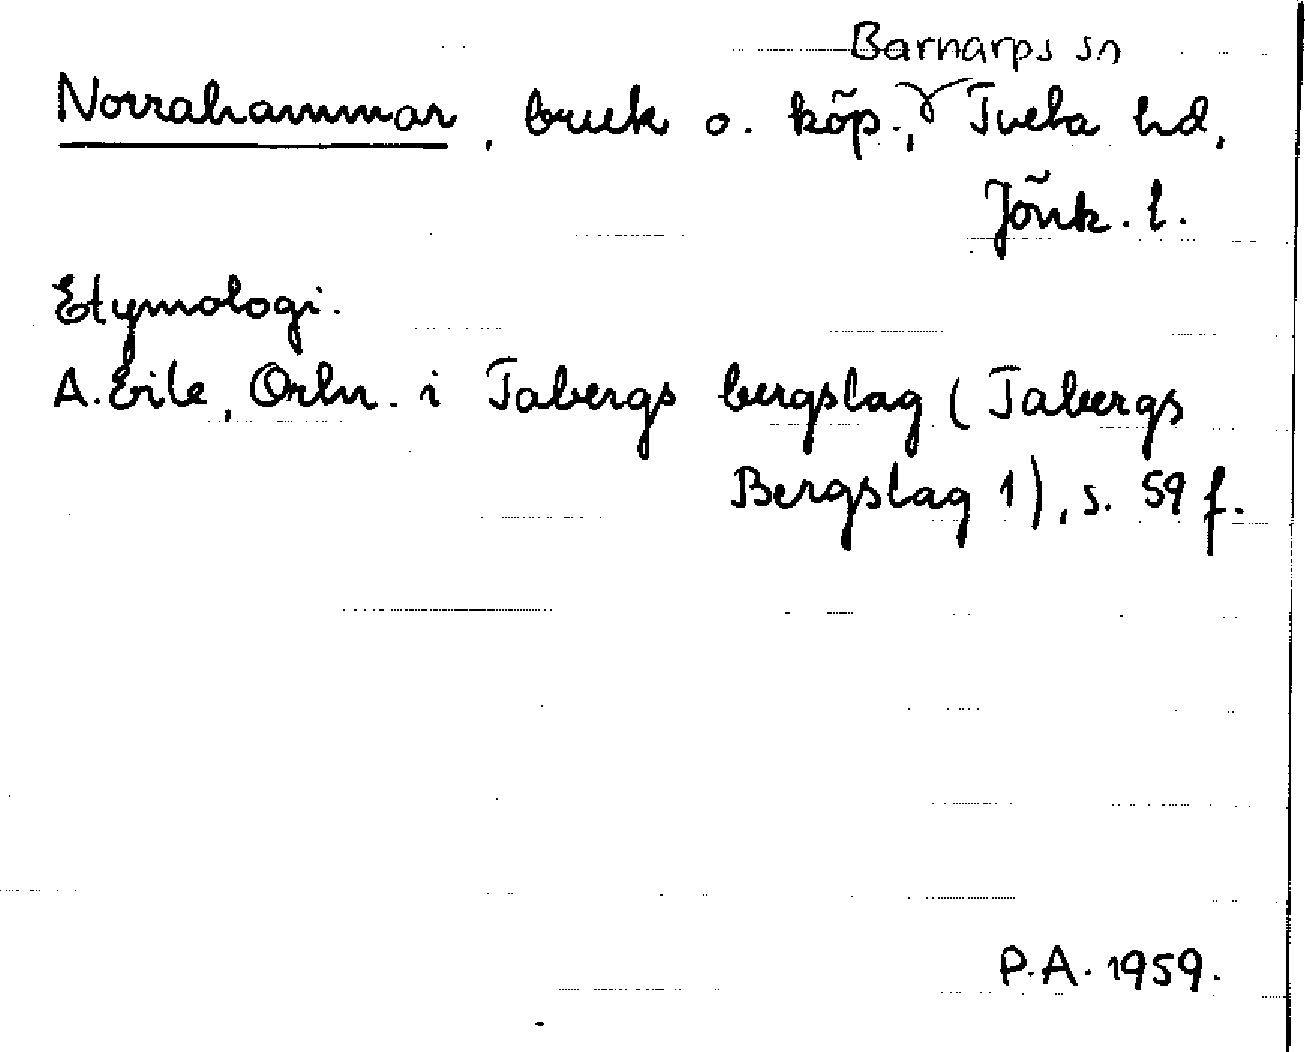 Barnarps sn
Norrahammar, bruk o. köp., Tveta hd,
Jönk. l.
Etymologi.
A. Ejle, Ortn. i Tabergs bergslag (Tabergs
Bergslag 1), s. 59 f.
P.A. 1959.